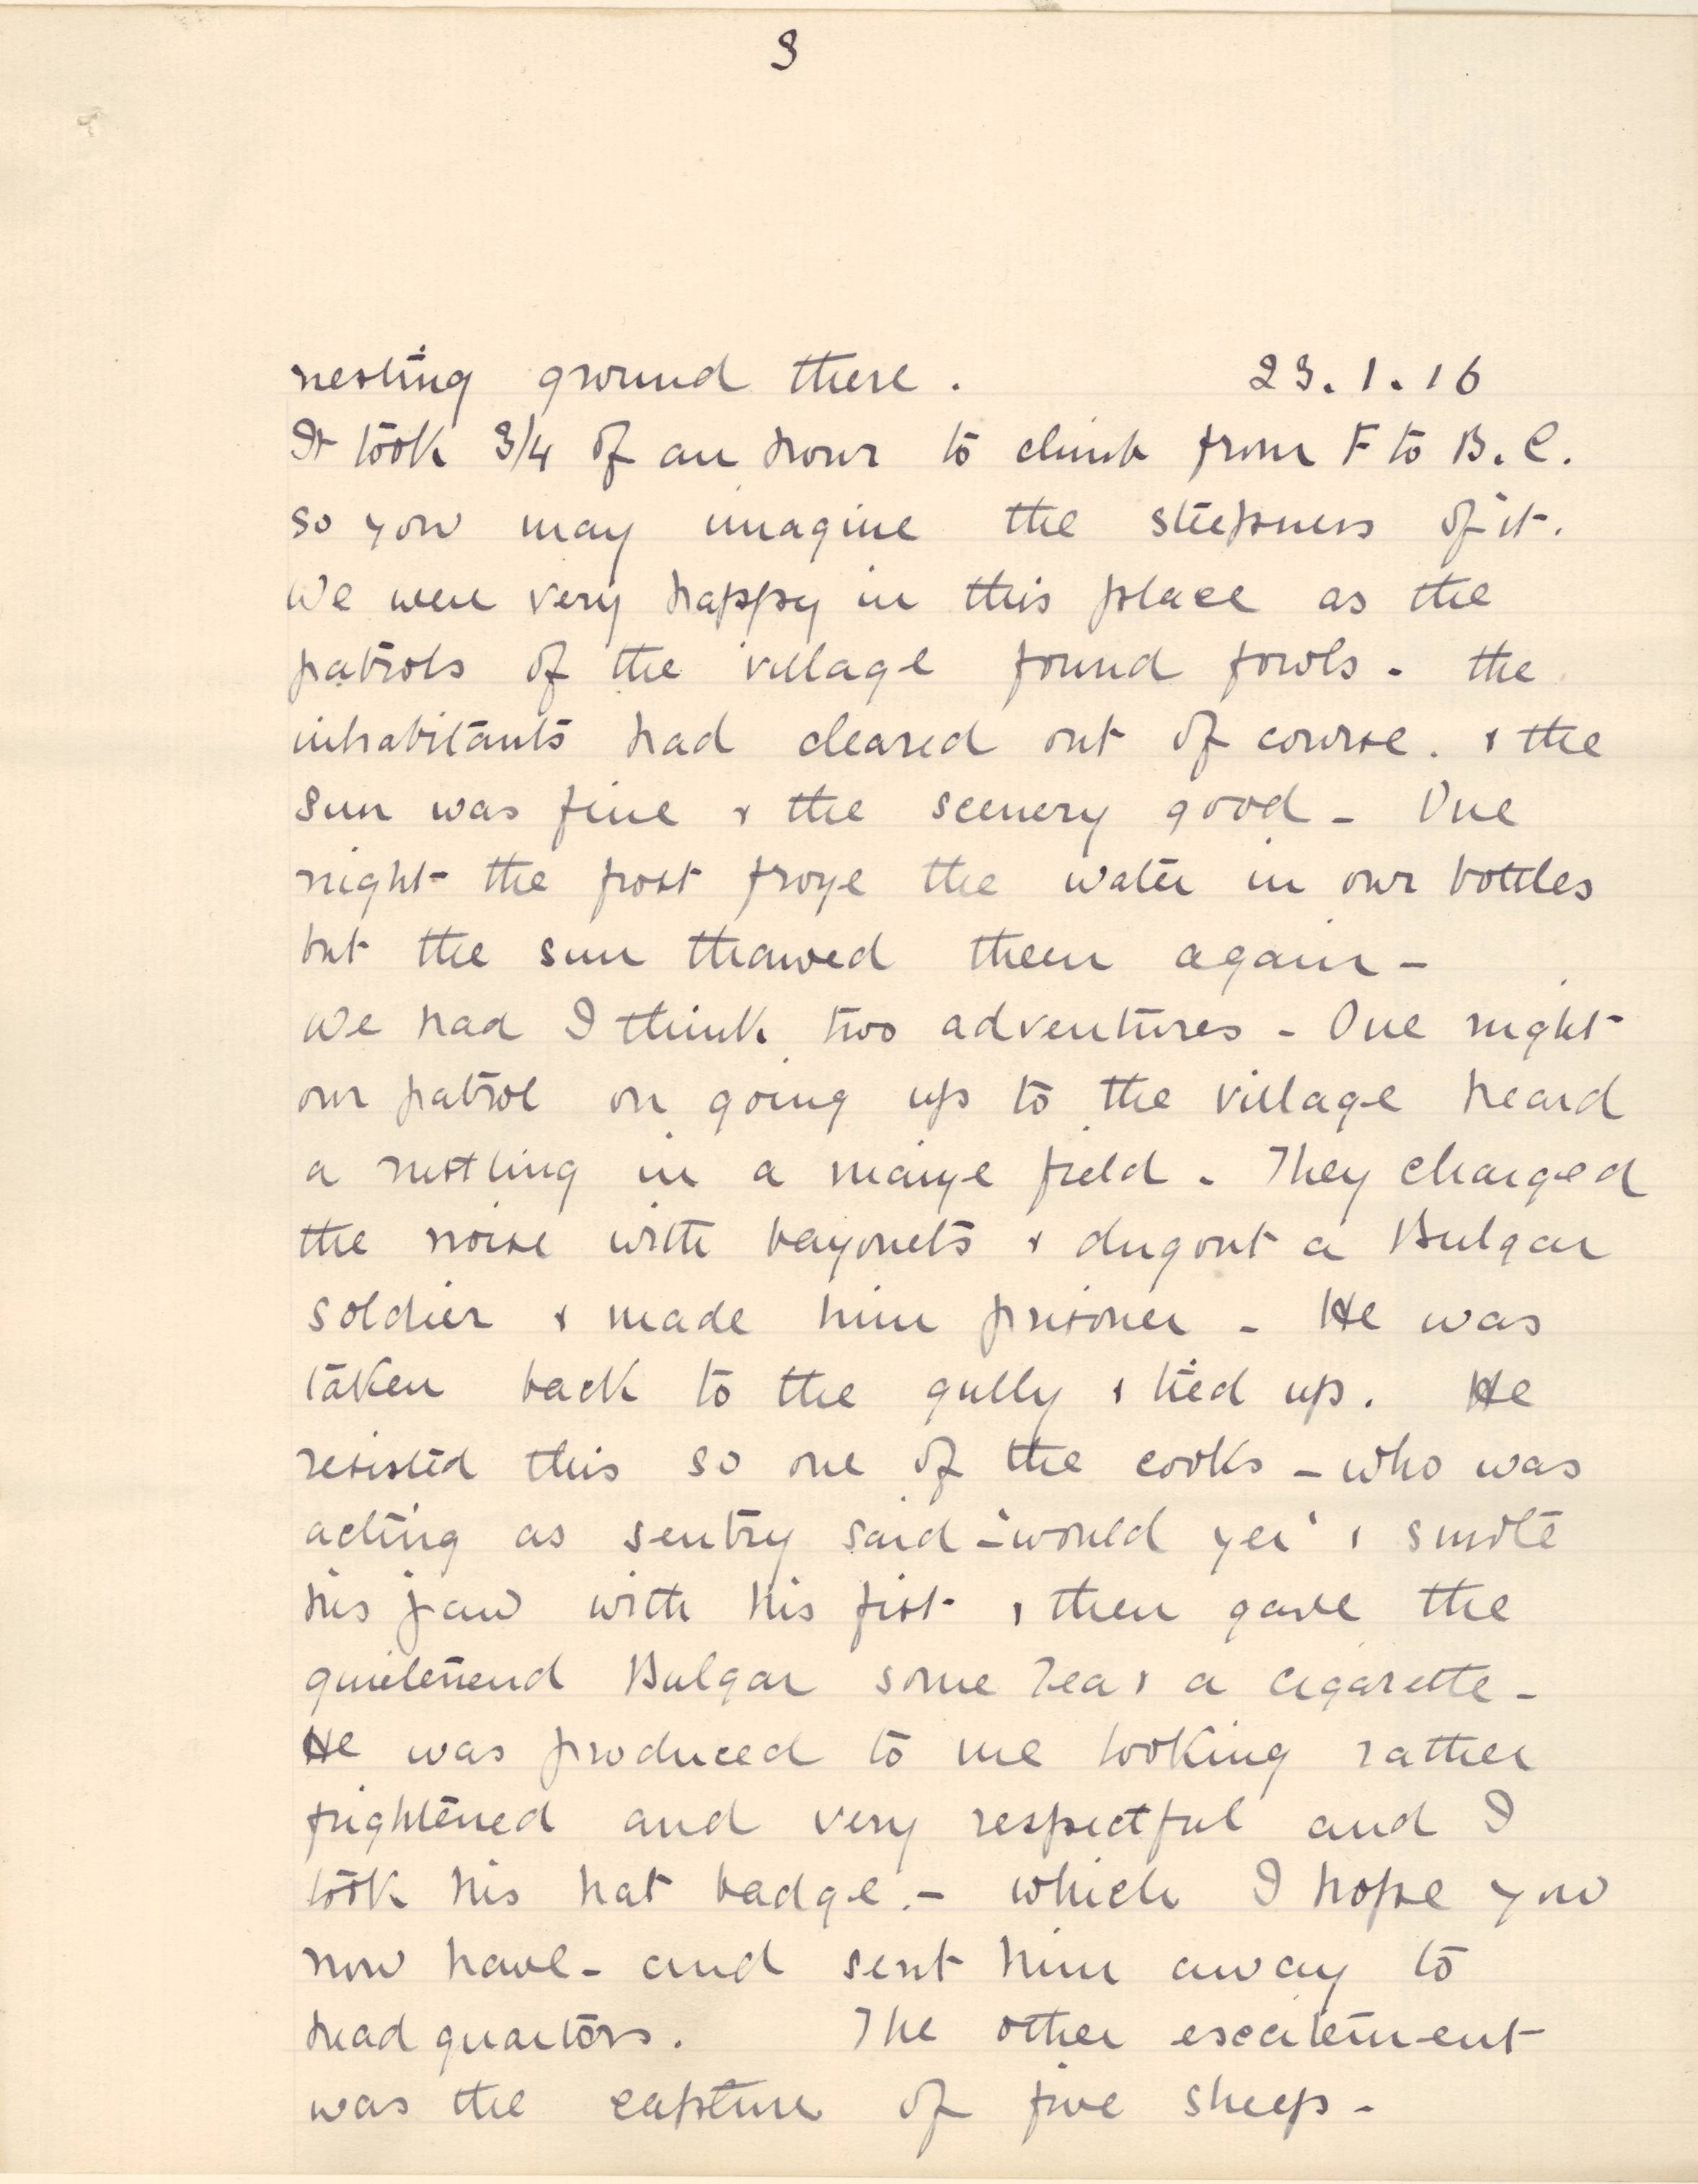 3
nesting ground there. 23.1.16
It took 3/4 of an hour to climb from F to B.C.
so you may imagine the steepness of it.
We were very happy in this place as the
patrols of the village found fowls - the
inhabitants had cleared out of course. & the
sun was fine & the scenery good - One
night the frost froze the water in our bottles
but the sun thawed them again -
We had I think two adventures - One night
our patrol on going up to the village heard
a rustling in a maize field - They charged
the noise with bayonets & dug out a Bulgar
soldier & made him prisoner - He was
taken back to the gully & tied up. He
resisted this so one of the cooks - who was
acting as sentry said - 'would yer' & smote
his jaw with his fist & then gave the
quietened Bulgar some tea & a cigarette -
He was produced to me looking rather
frightened and very respectful and I
took his hat badge. - which I hope you
now have - and sent him away to
head quarters. The other excitement
was the capture of five sheep -